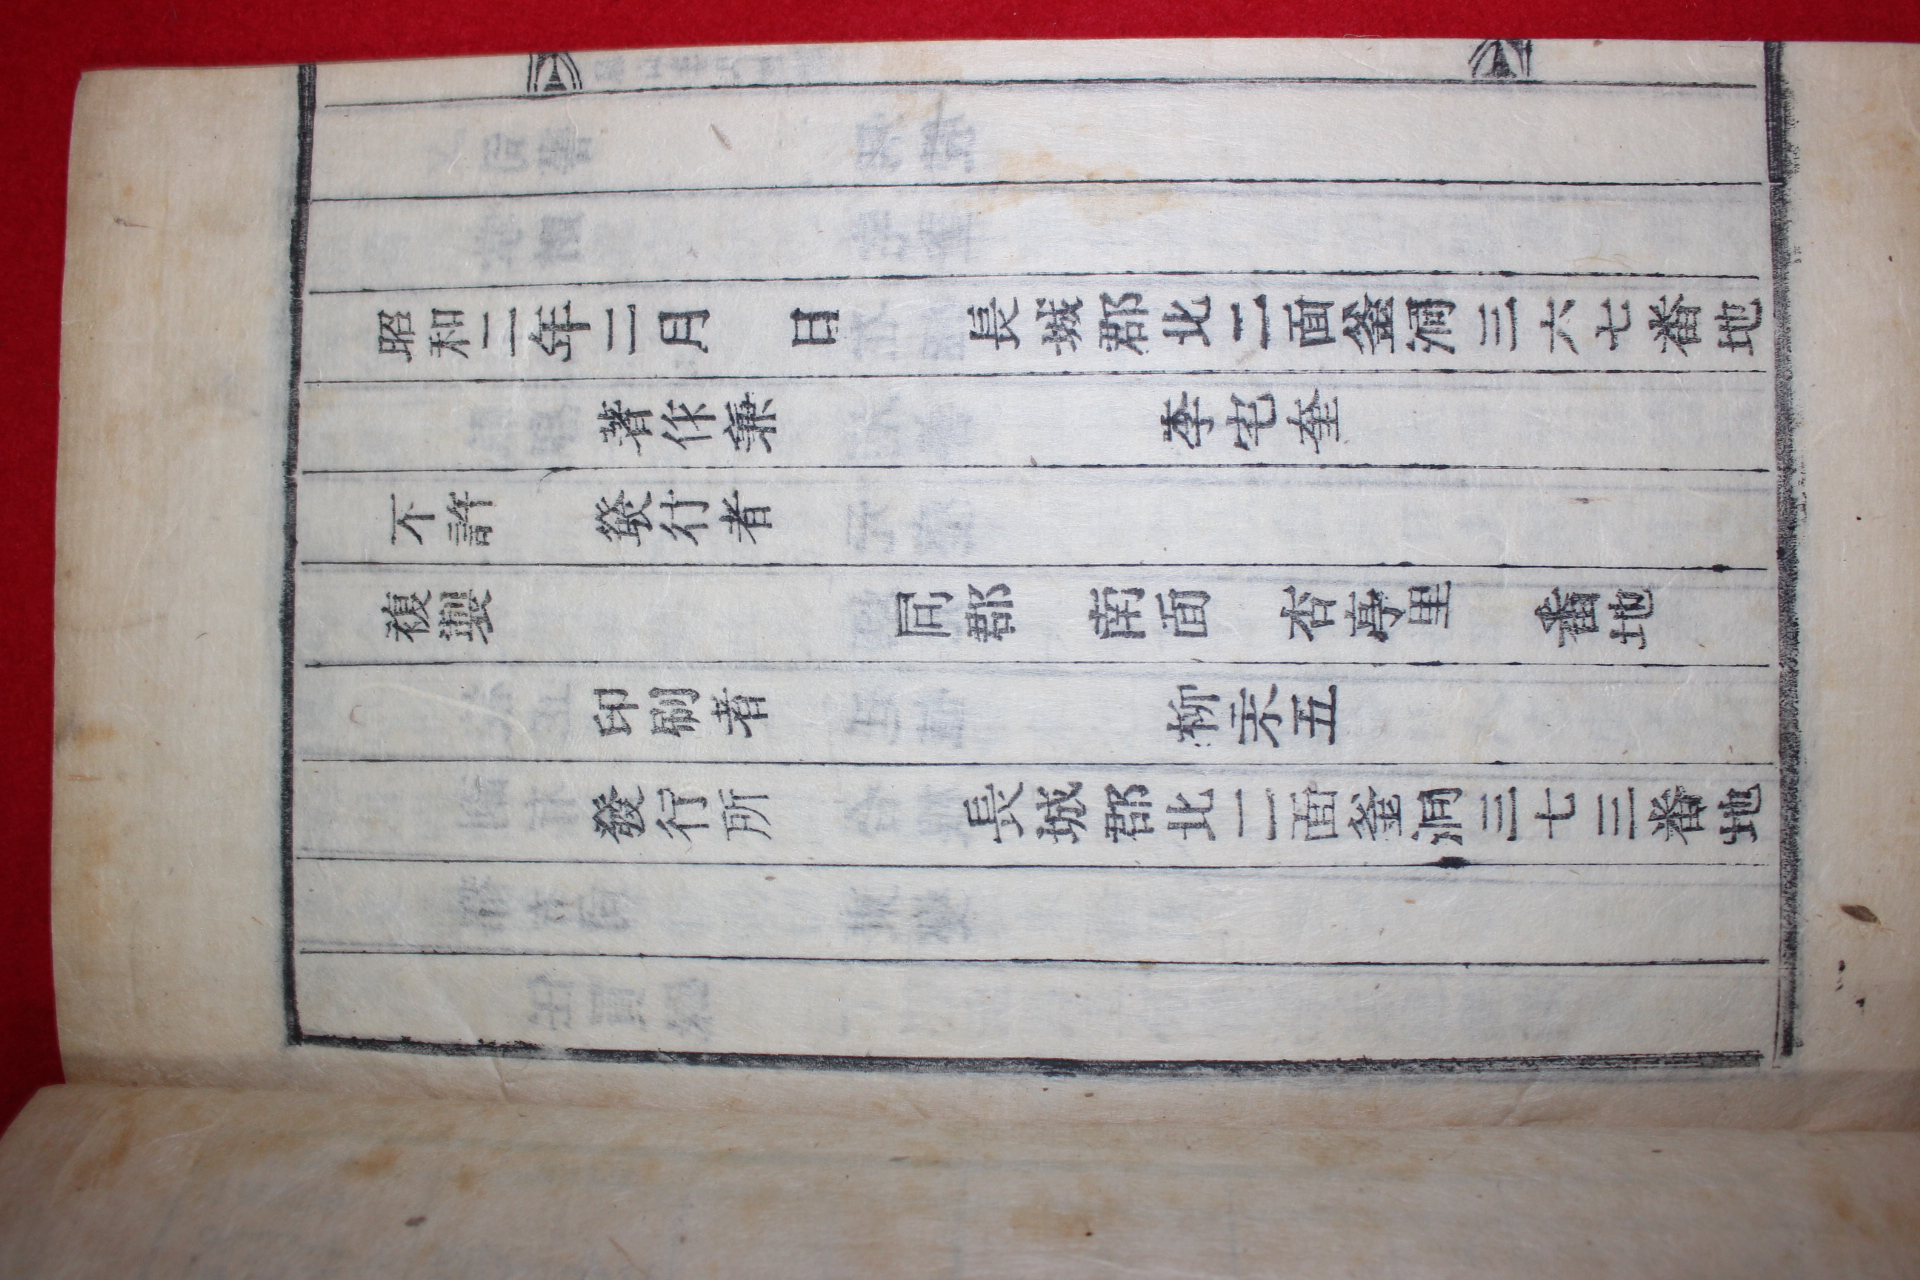 昭和二年二月 日 長城郡北二面釜洞三六七番地
著作兼 李宅奎
不許 發行者
複製 同郡 南面 杏亭里 番地
印刷者 柳宗五
發行所 長城郡北二面釜洞三七三番地